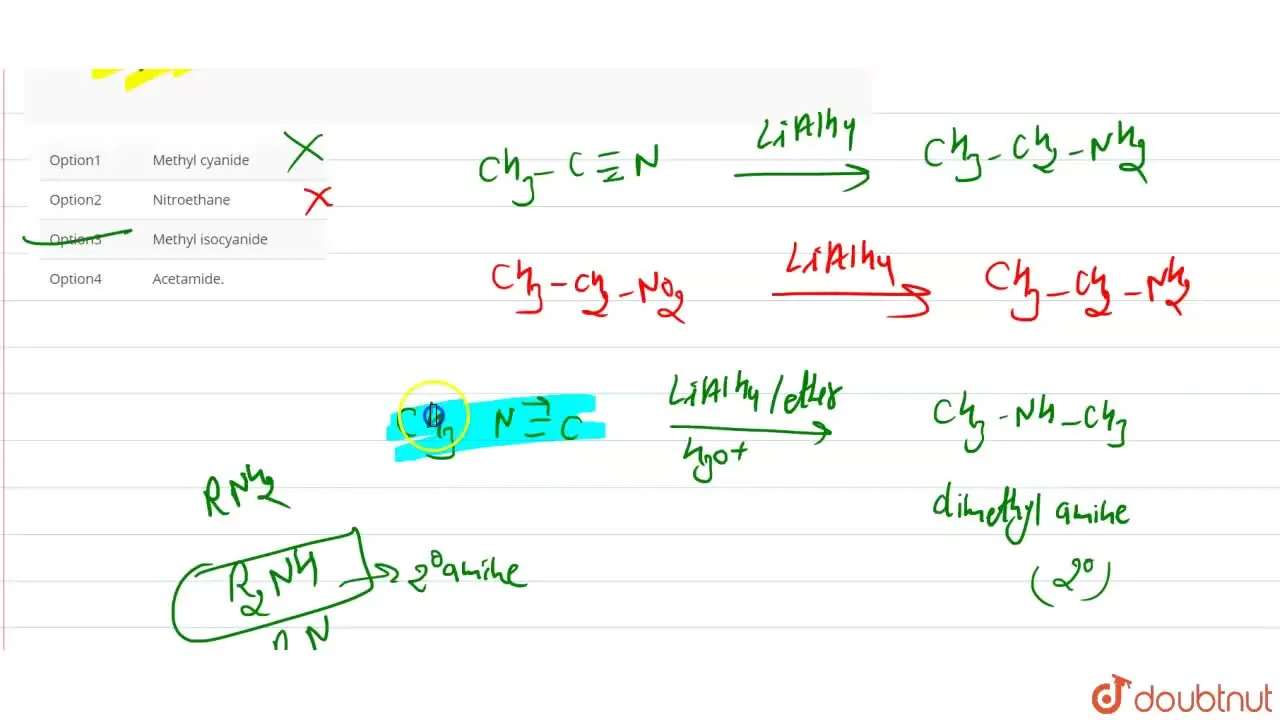 Option1 Methyl cyanide X
Option2 Nitroethane X
Option3 Methyl isocyanide
Option4 Acetamide.
CH3-C≡N LiAlH4 CH3-CH2-NH2
CH3-CH2-NO2 LiAlH4 CH3-CH2-NH2
CH3 N≡C LiAlH4/ether CH3-NH-CH3
H3O+
RNH2
dimethyl amine
R2NH → 2° amine
(2°)
doubtnut